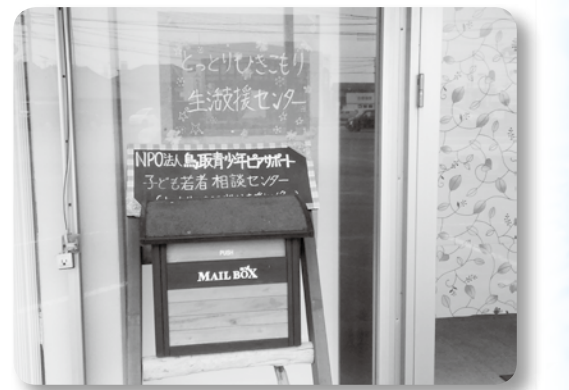 とっとりひきこもり
生活支援センター
NPO法人鳥取青少年ピアサポート
子ども若者相談センター
PUSH
MAIL BOX